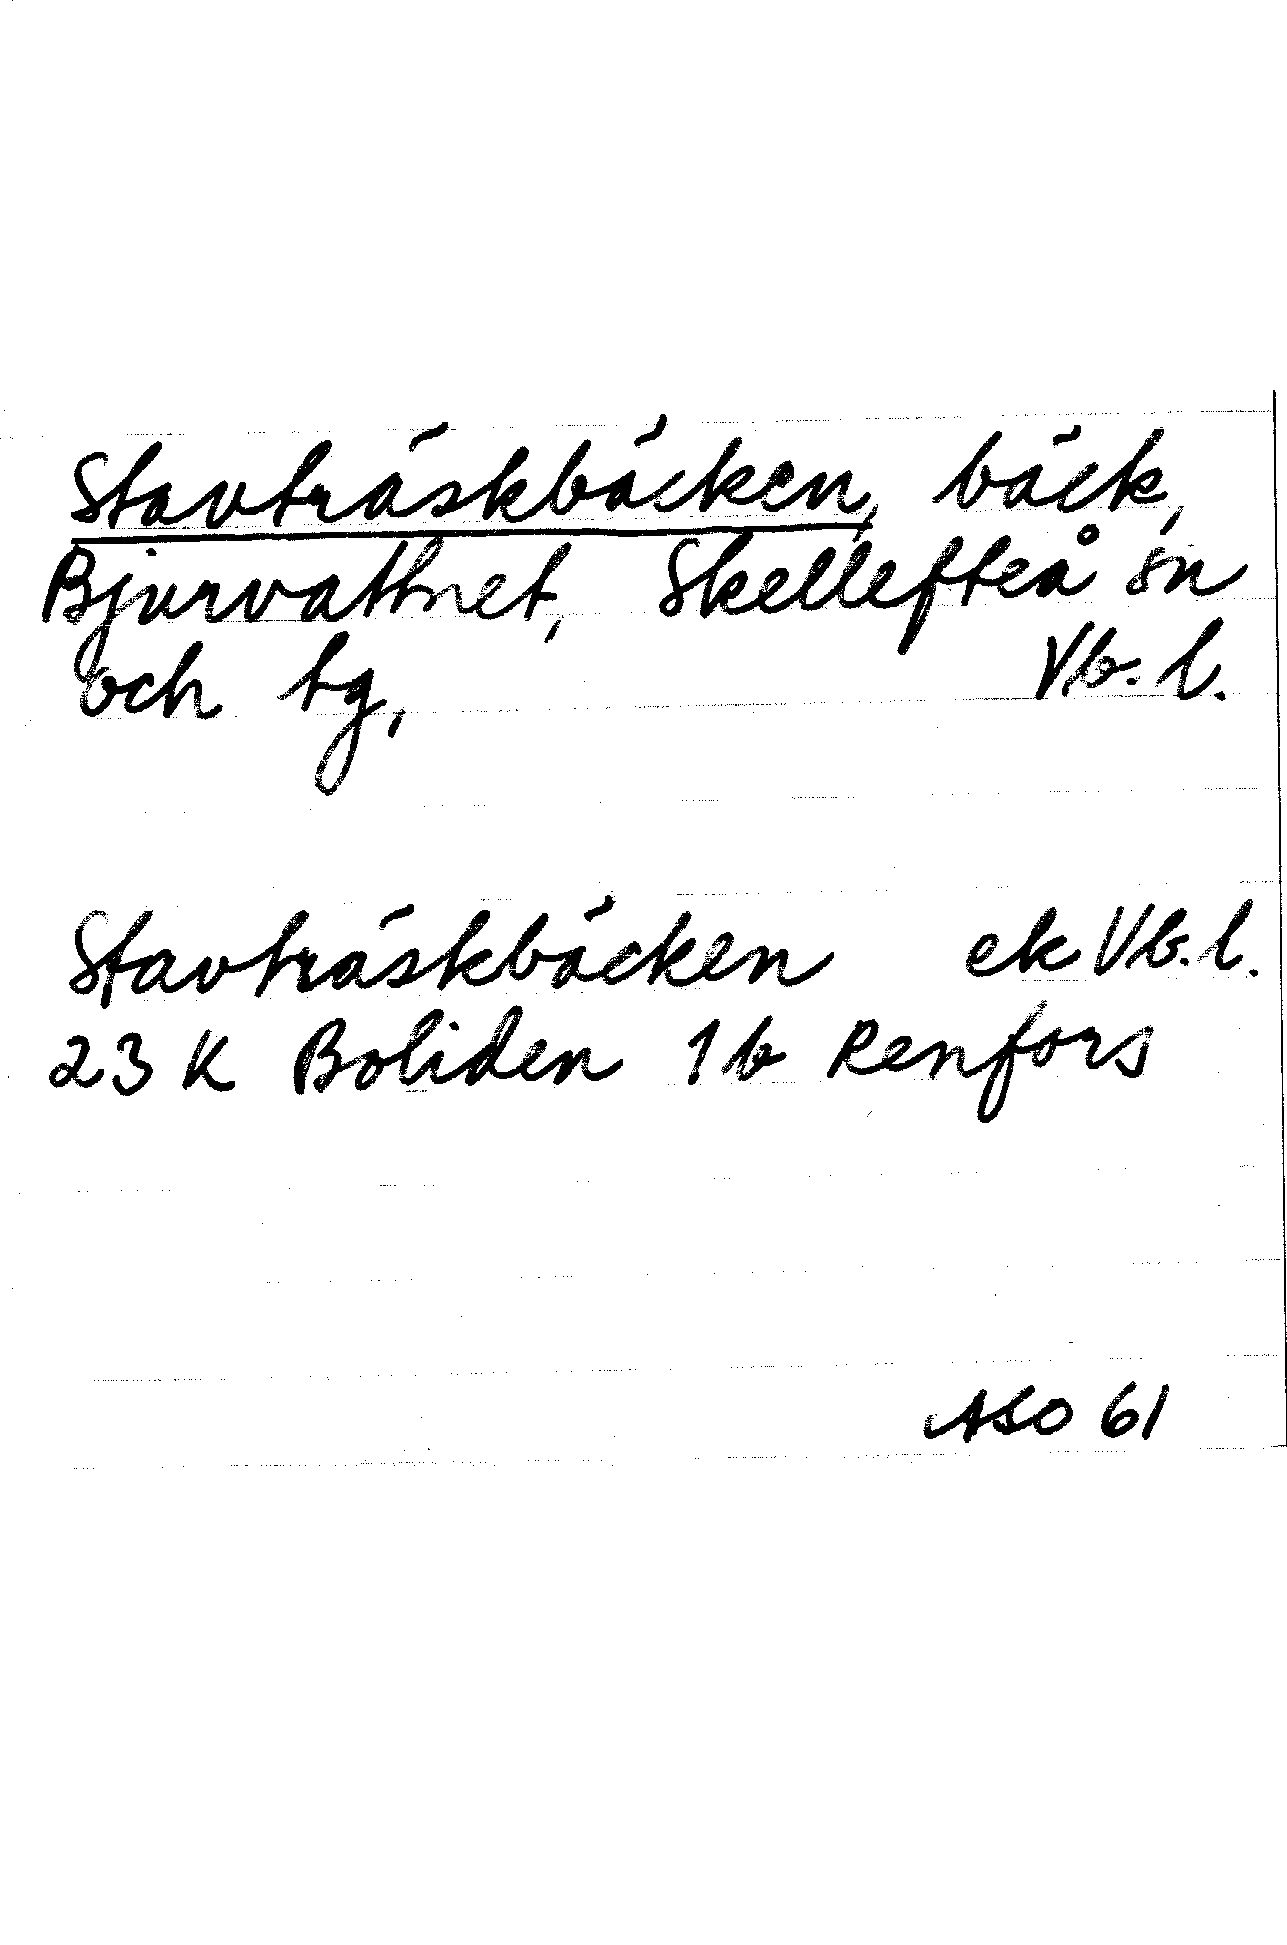 Stavträskbäcken, bäck,
Bjurvattnet, Skellefteå sn
och tg, Vb. l.
Stavträskbäcken ek Vb. l.
23 K Boliden 1 b Renfors
ASO 61